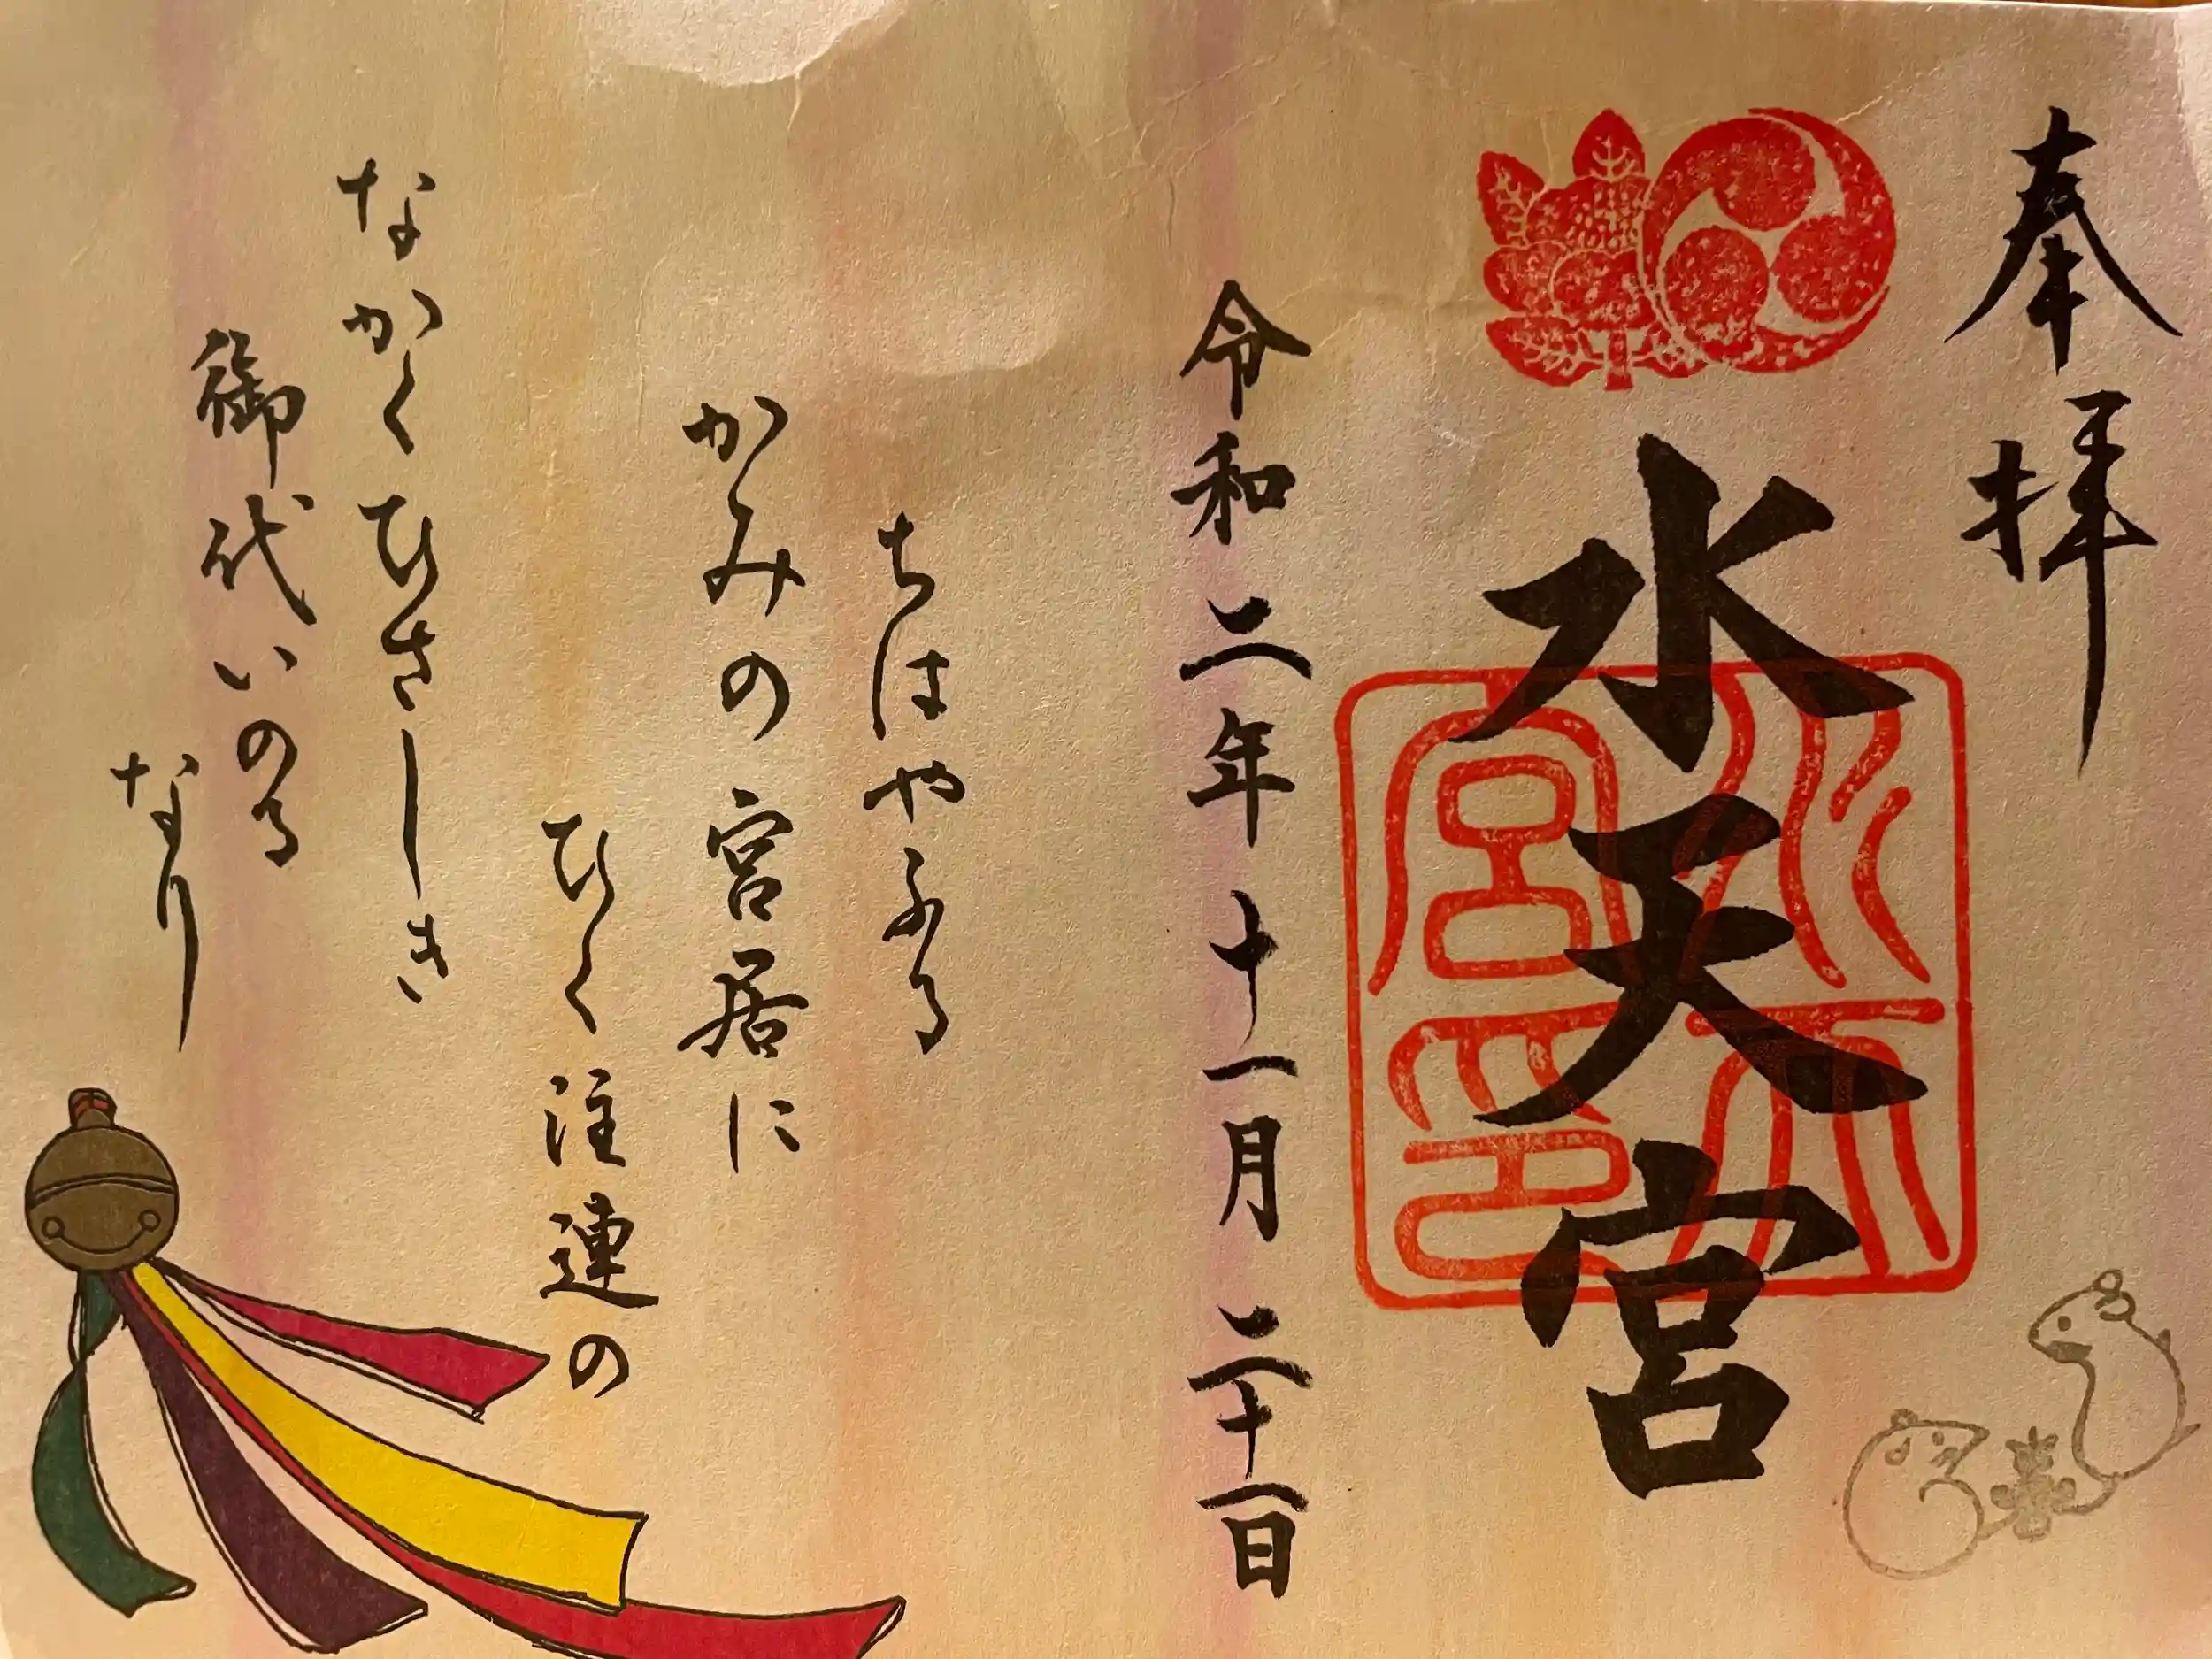 奉拝
水天宮
水天宮印
令和二年十一月二十一日
ちはやふる
かみの宮居に
ひく注連の
なかくひさしき
御代いのる
なり